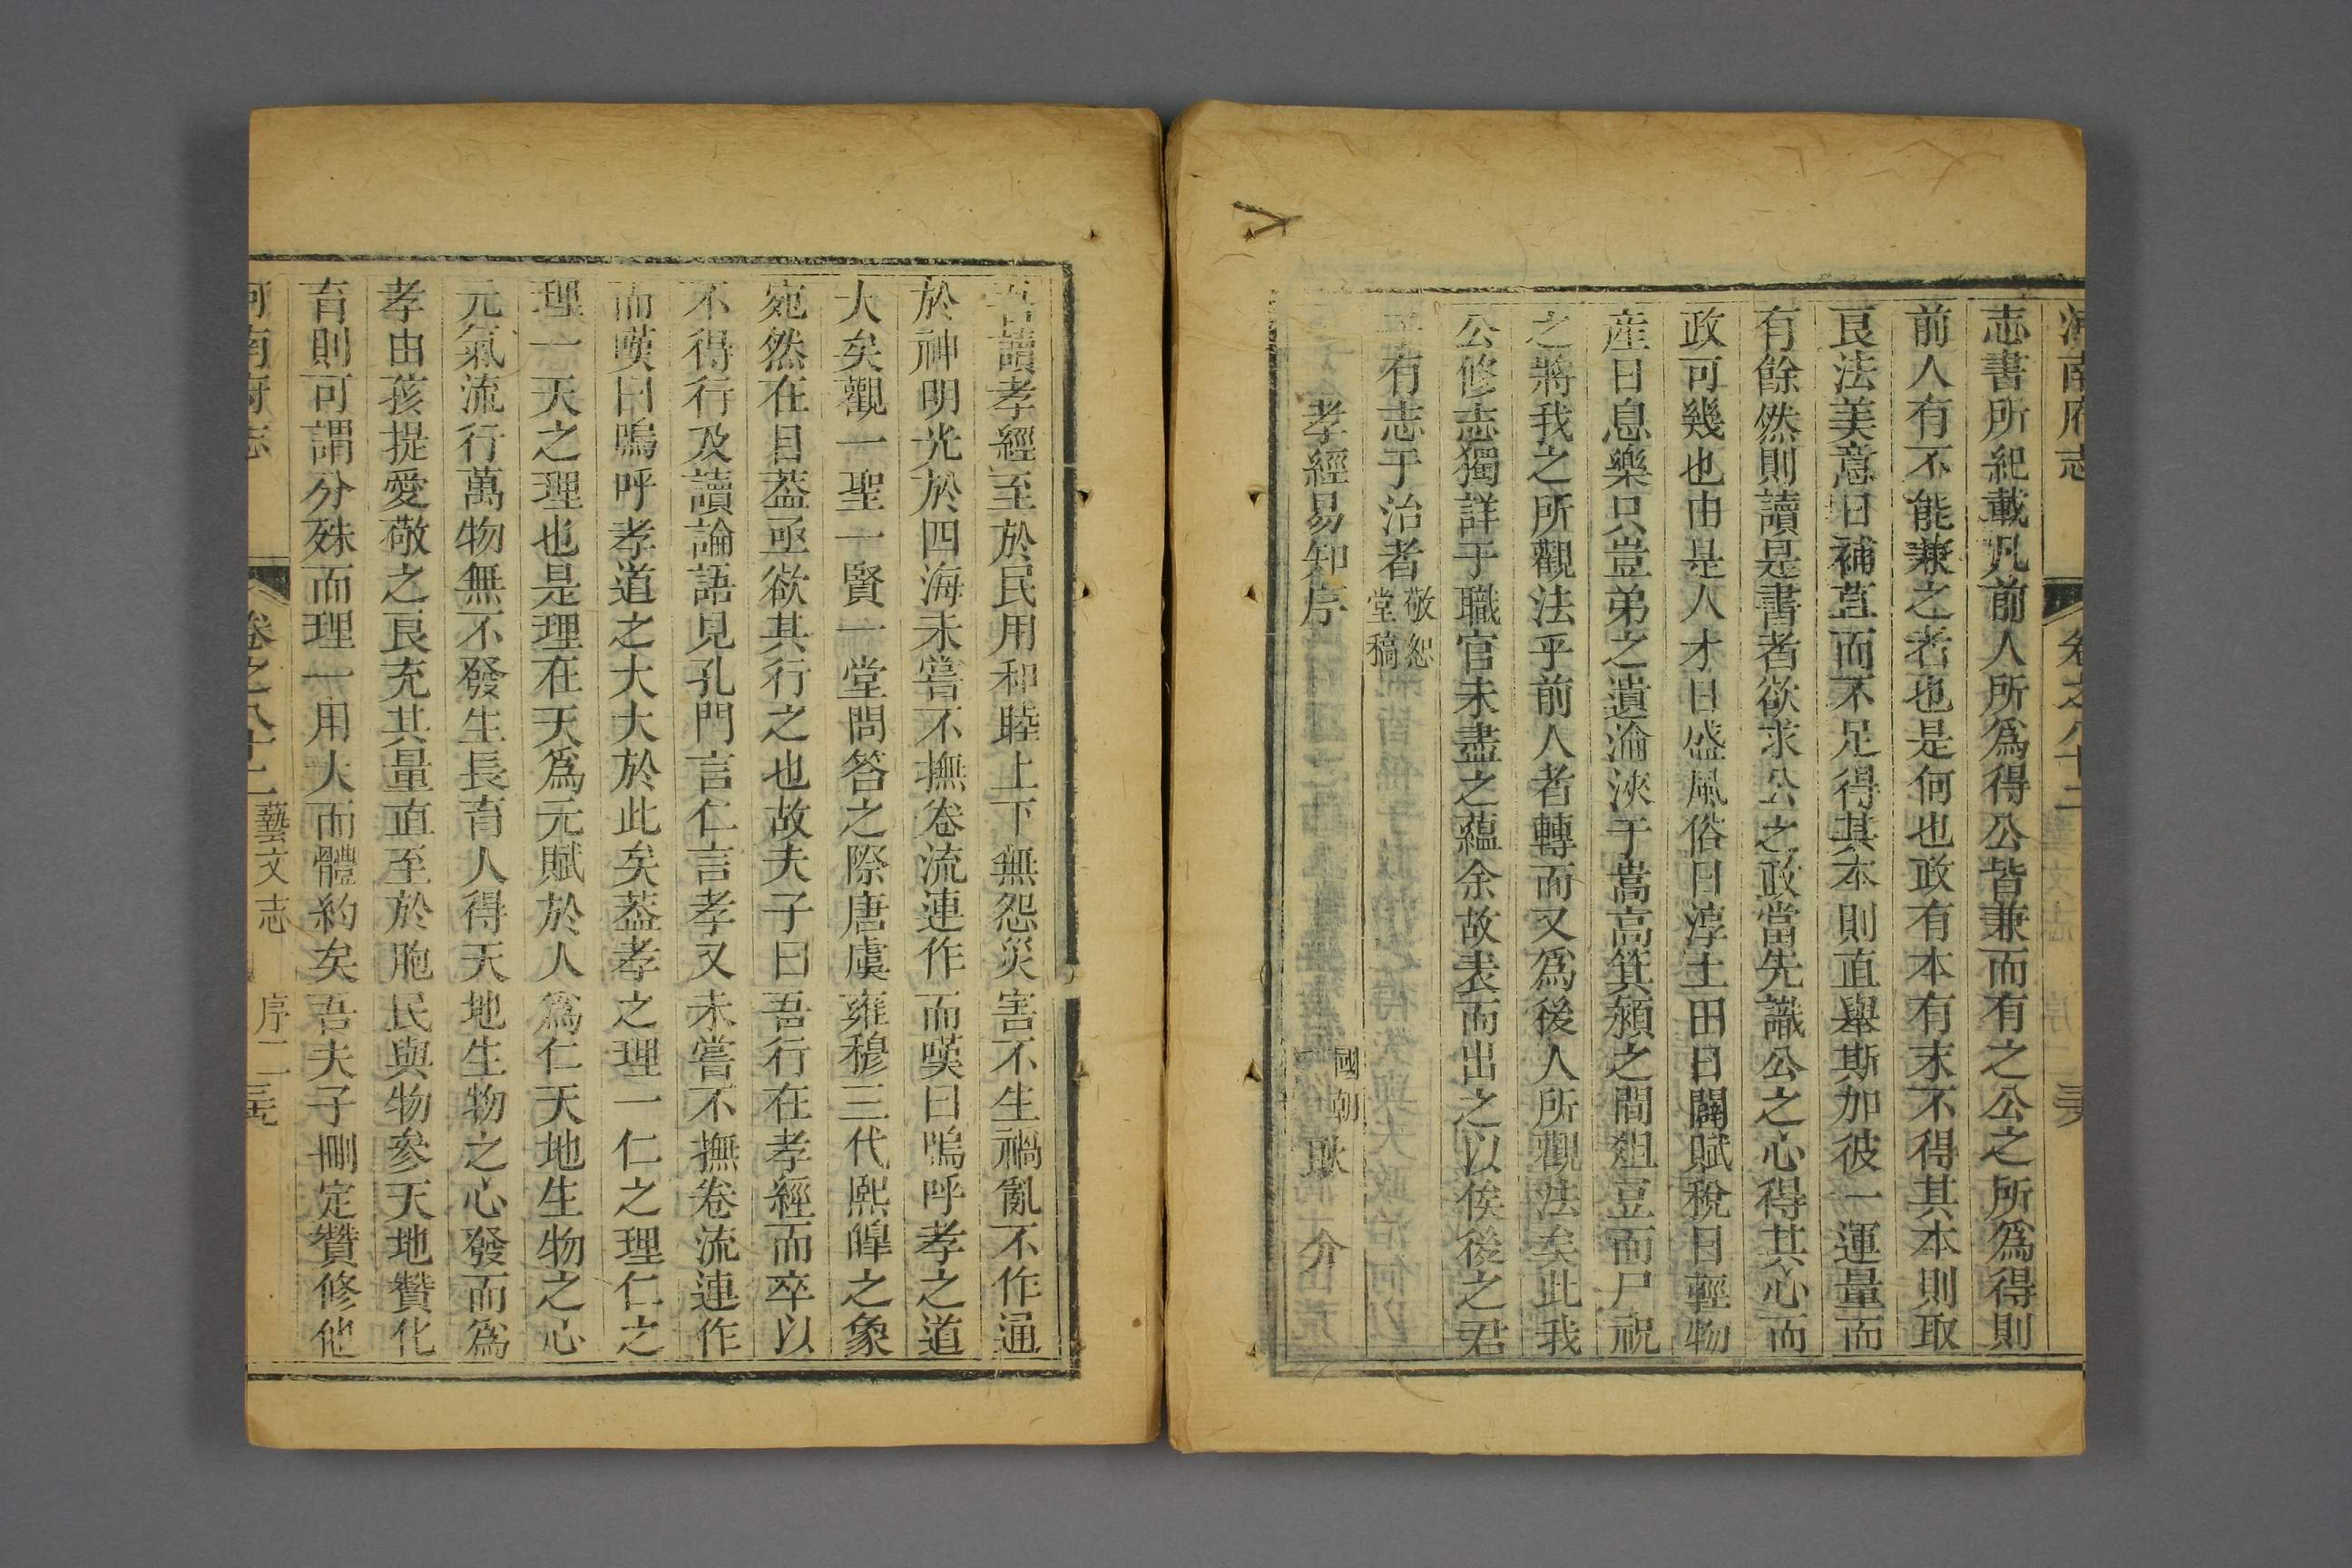 河南府志 卷之八十二
志書所紀載凡前人所為得公皆兼而有之公之所為得則
前人有不能兼之者也是何也政有本有末不得其本則取
良法美意日補苴而不足得其本則直舉斯加彼一運量而
有餘然則讀是書者欲求公之政當先識公之心得其心而
政可幾也由是人才日盛風俗日淳土田日闢賦稅日輕物
産日息樂只豈弟之遺淪浹于嵩高箕潁之間俎豆而尸祝
之將我之所觀法乎前人者轉而又為後人所觀法矣此我
公修志獨詳于職官未盡之蘊余故表而出之以俟後之君
子有志于治者敬恕堂稿
孝經易知序 國朝 耿 介
吾讀孝經至於民用和睦上下無怨災害不生禍亂不作通
於神明光於四海未嘗不撫卷流連作而嘆曰嗚呼孝之道
大矣觀一聖一賢一堂問答之際唐虞雍穆三代熙皞之象
宛然在目葢亟欲其行之也故夫子曰吾行在孝經而卒以
不得行及讀論語見孔門言仁言孝又未嘗不撫卷流連作
而嘆曰嗚呼孝道之大大於此矣葢孝之理一仁之理仁之
理一天之理也是理在天為元賦於人為仁天地生物之心
元氣流行萬物無不發生長育人得天地生物之心發而為
孝由孩提愛敬之良充其量直至於胞民與物參天地贊化
育則可謂分殊而理一用大而體約矣吾夫子刪定贊修他
河南府志 卷之八十二 藝文志 序二